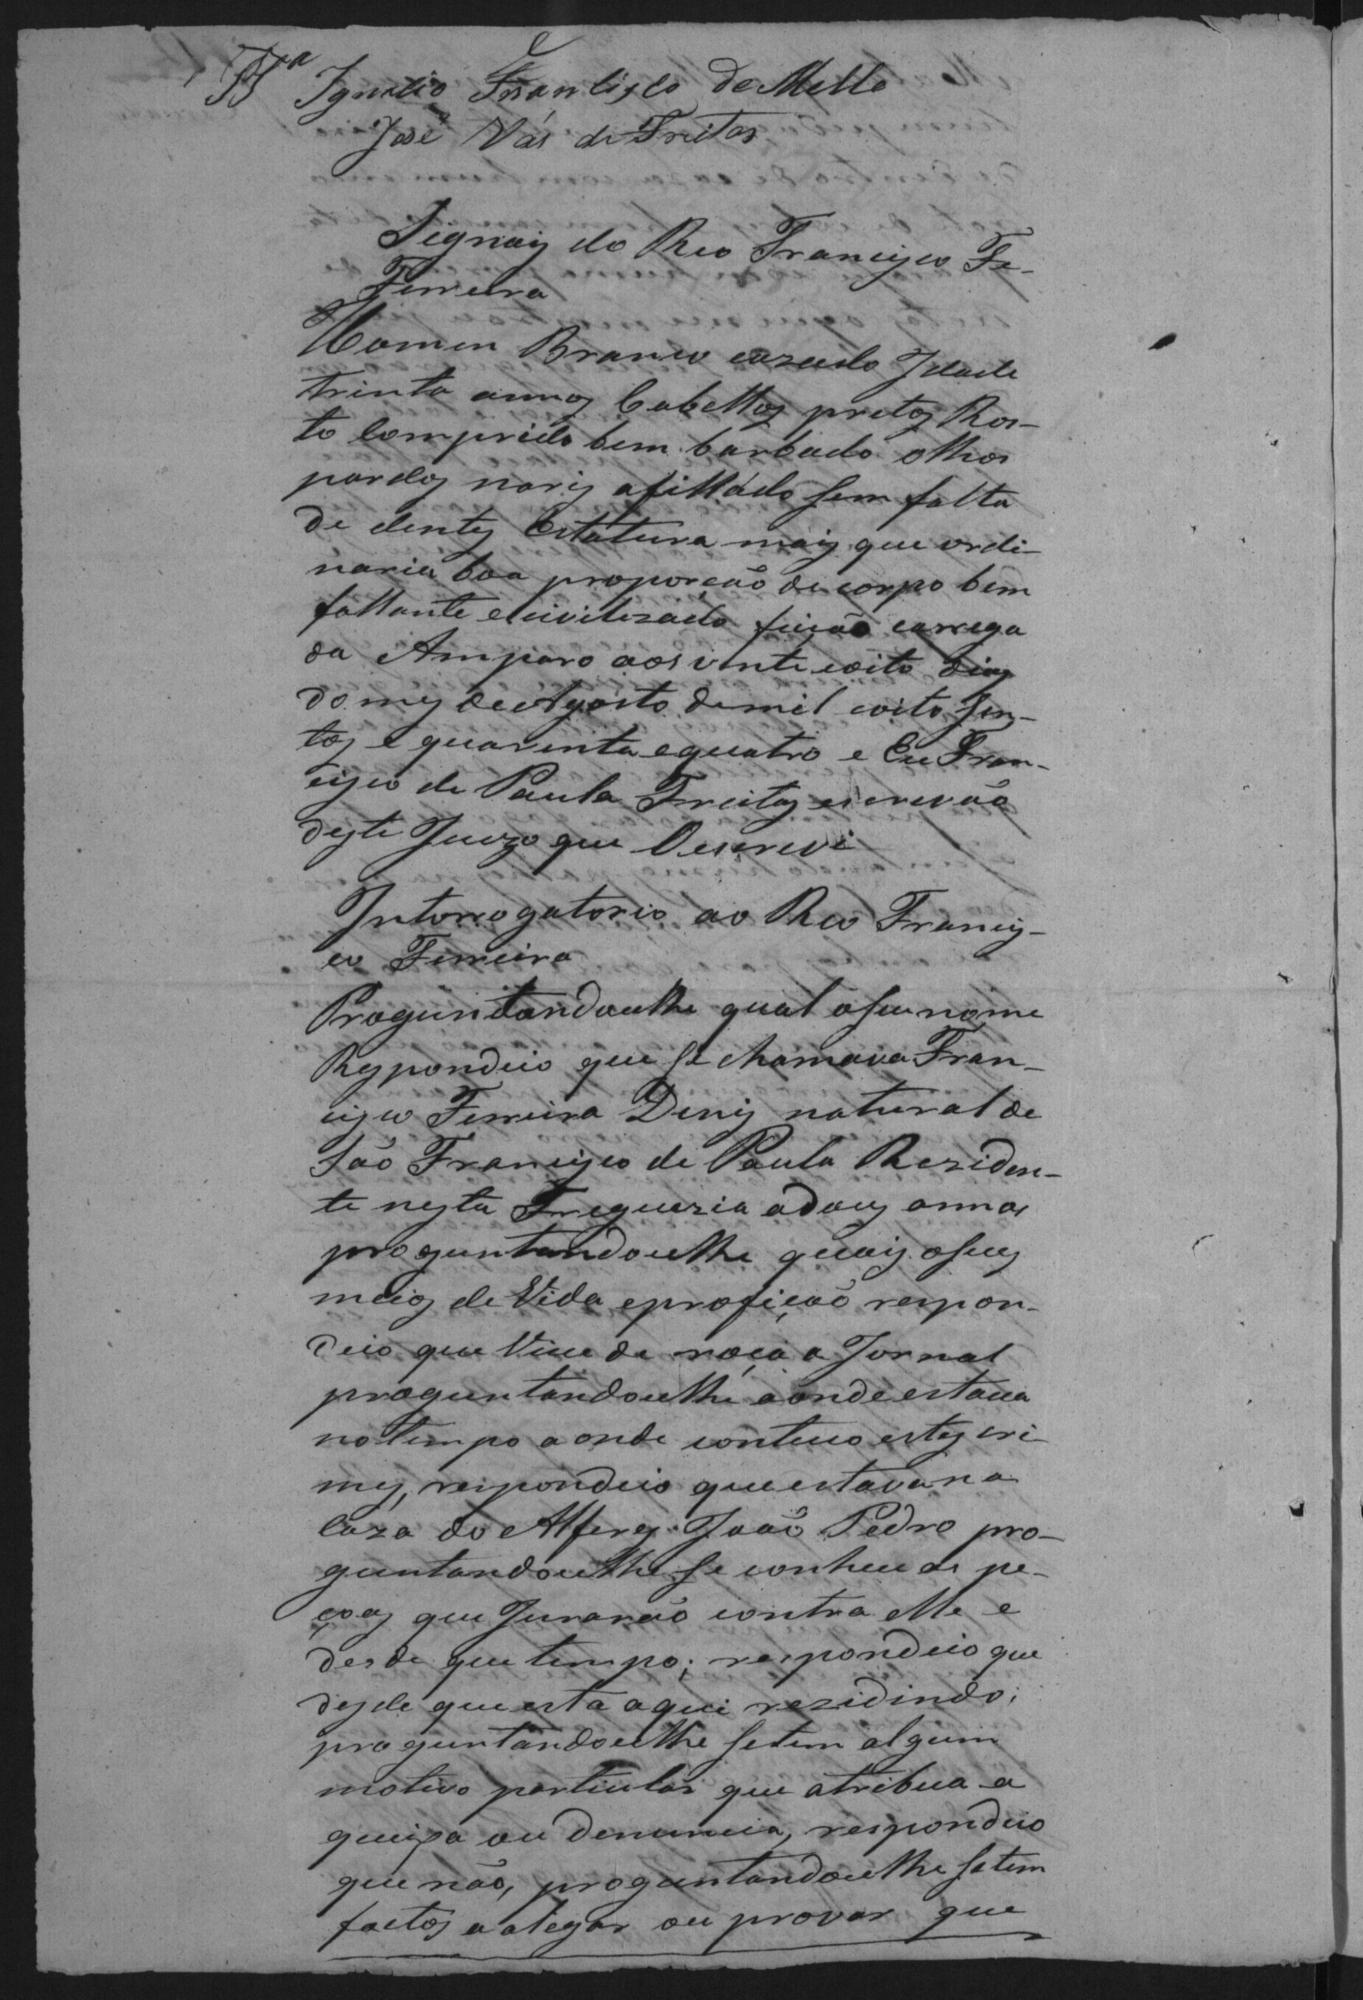 Tta Ignacio Francisco de Mello
José Vas de Freitas
Signaiz do Reo Francisco Fe-
Ferreira
Homen Branco cazado Idade
trinta annos Cabellos pretos Ros-
to Comprido bem barbado olhos
pardos naris afilládo sem falta
de dentes Estatura mais que ordi-
naria boa proporção de corpo bem
fallante e civilizado feição carrega
da Amparo aos vinte e oito dias
do mes de Agosto de mil e oito sen-
tos e quarenta e quatro e Eu Fran-
cisco de Paula Freitas escrivão
deste Juizo que Oescrevi
Intorrogatorio ao Reo Francis-
co Ferreira
Proguntandoulhe qual o seu nome
Respondeio que se chamava Fran-
cisco Ferreira Denis natural de
São Francisco de Paula Reziden-
te nesta Freguezia a dous annos
proguntandoulhe quais o seus
meios de Vida e profiçaõ respon-
deio que Vive de roça a Jornal
proguntandoulhe aonde estava
no tempo aonde conteceo estes cri
mes, respondeio que estava na
Caza do Alferes João Pedro pro-
guntandoulhe se conhece as pe-
çoas que Jurarão contra elle e
desde que tempo; respondeio que
desde que esta aqui rezidindo;
proguntandoulhe se tem algum
motivo particular que atribua a
queixa ou denuncia, respondeio
que não, proguntandoulhe se tem
factos a alegar ou provar que